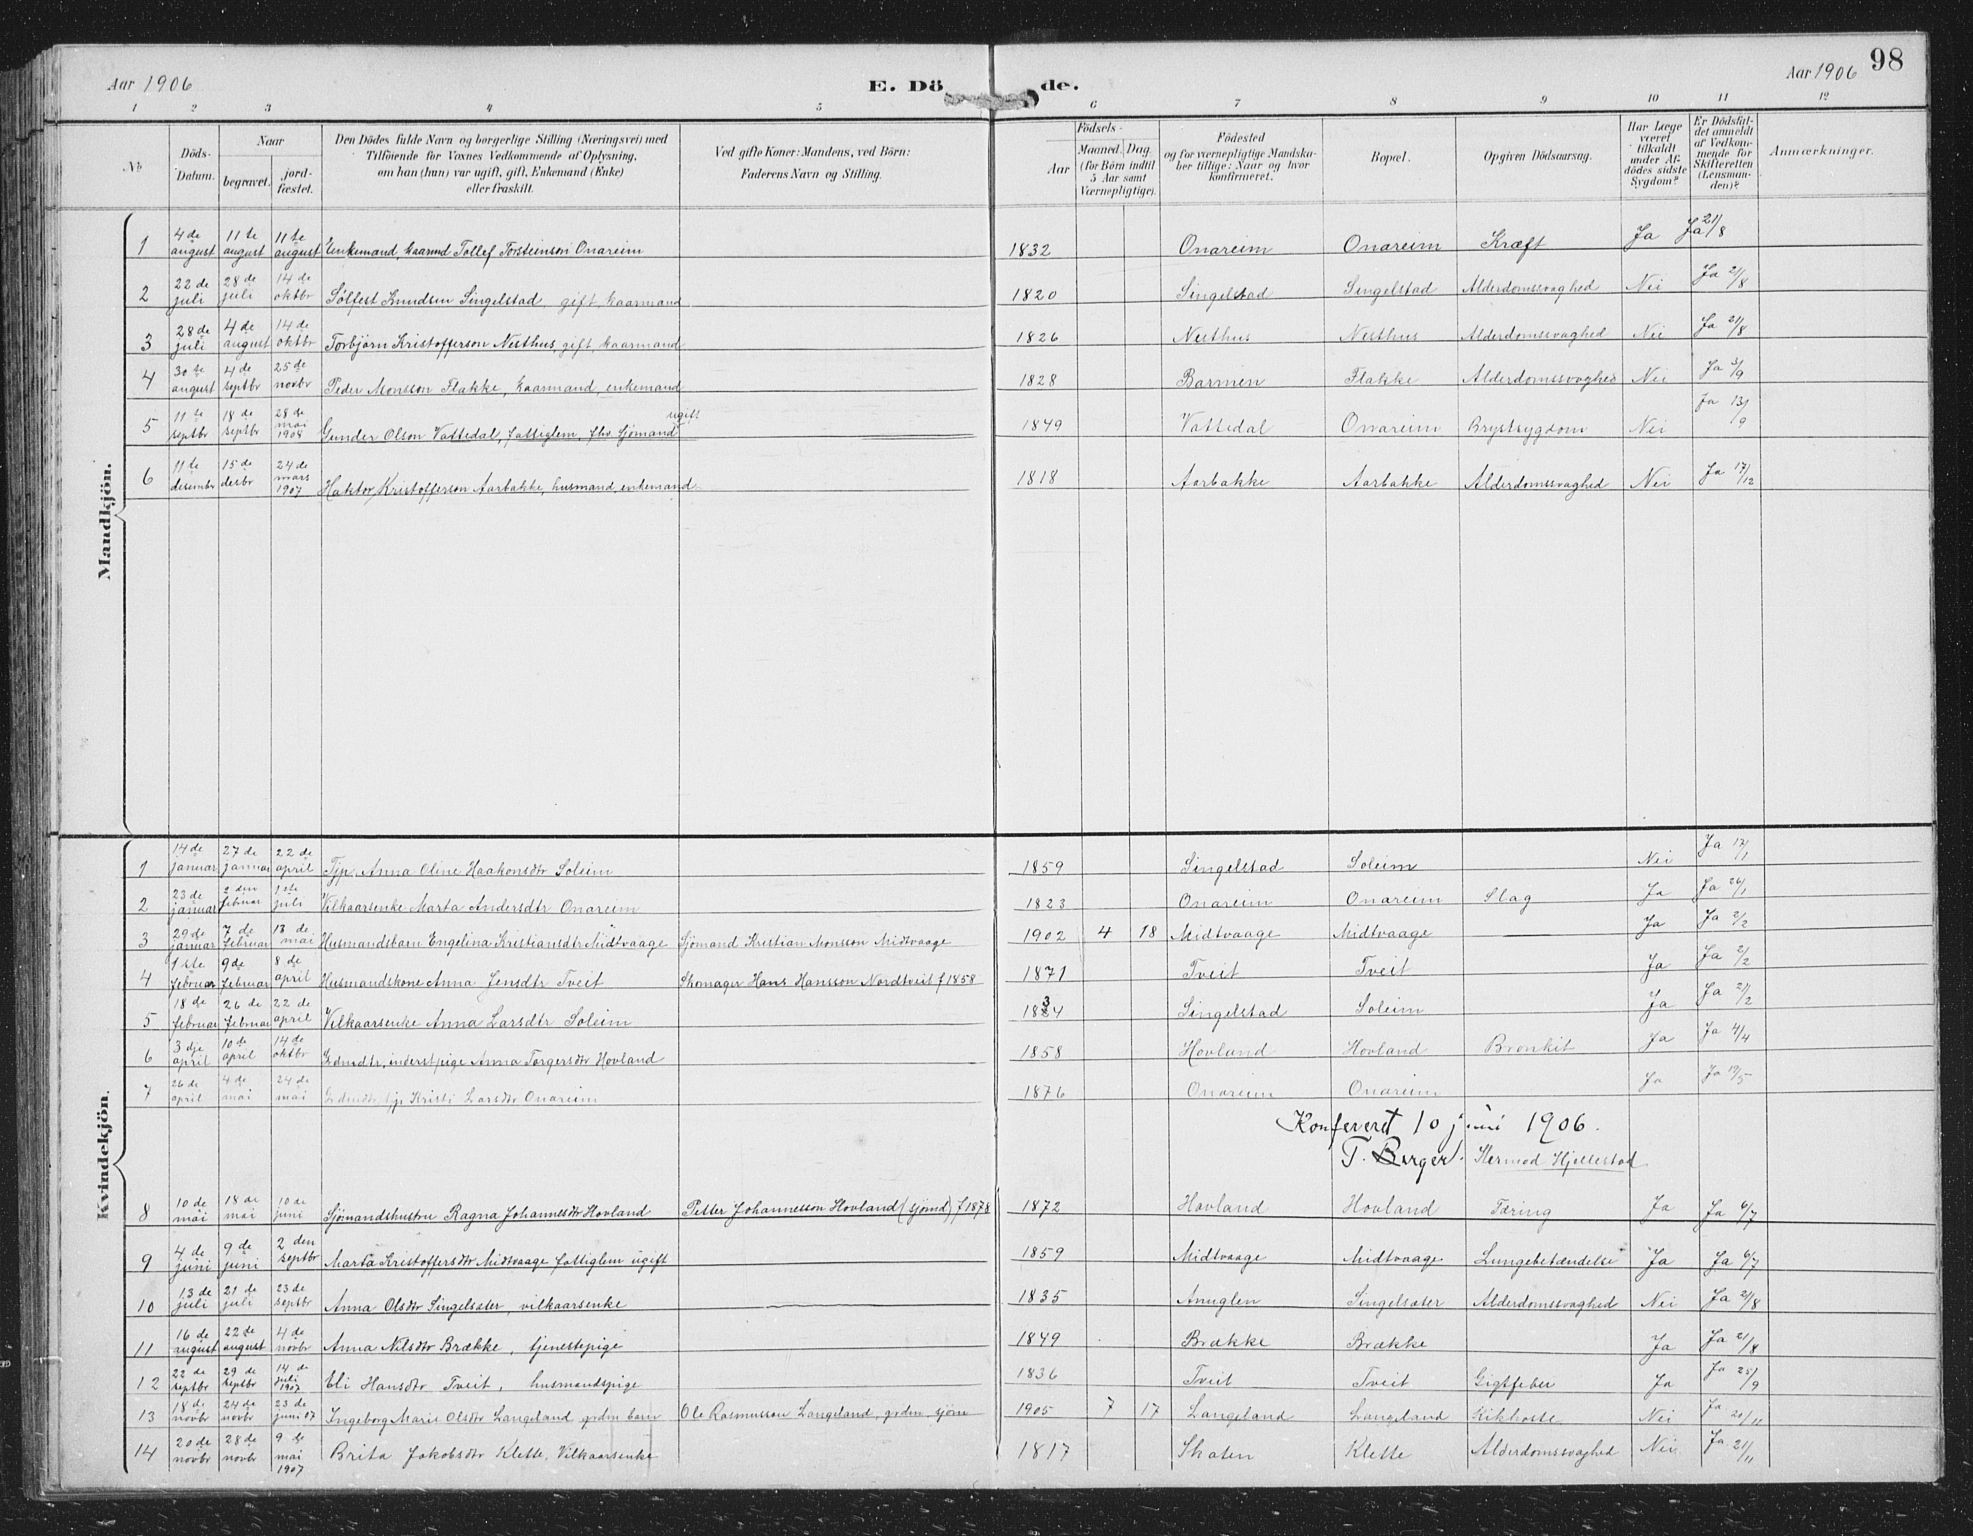 Aar 1906 E. Dö de. Aar 1906 98
1 2 3 4 5 6 7 8 9 10 11 12
№ Döds-Datum. Naar begravet. jord-fæstet. Den Dödes fulde Navn og borgerlige Stilling (Næringsvei) med Tilföiende for Voxnes Vedkommende af Oplysning, om han (hun) var ugift, gift, Enkemand (Enke) eller fraskilt. Ved gifte Koner: Mandens, ved Börn: Faderens Navn og Stilling. Födsels- Aar Maaned. Dag. (for Börn indtil 5 Aar samt Værnepligtige). Födested og for værnepligtige Mandskaber tillige: Naar og hvor konfirmeret. Bopæl. Opgiven Dödsaarsag. Har Læge været tilkaldt under Afdödes sidste Sygdom? Er Dödsfaldet anmeldt af Vedkommende for Skifteretten (Lensmanden)? Anmærkninger.
Mandkjön.
1 4de august 11te august 11te august Enkemand, kaarmd Tollef Torsteinson Onareim 1832 Onareim Onareim Kræft Ja Ja 21/8
2 22de juli 28de juli 14de oktbr Sölfest Knudsen Singelstad, gift, kaarmand 1820 Singelstad Singelstad Alderdomssvaghed Nei Ja 21/8
3 28de juli 4de august 14de oktbr Torbjørn Kristofferson Nesthus, gift, kaarmand 1826 Nesthus Nesthus Alderdomssvaghed Nei Ja 21/8
4 30te august 4de septbr 25de novbr Peder Monsson Flakke, kaarmand, enkemand 1828 Barmen Flakke Alderdomssvaghed Nei Ja 3/9
5 11te septbr 18de septbr 28de mai 1908 Gunder Olson Vattedal, fattiglem, fhv. Sjömand ugift 1849 Vattedal Onareim Brystsygdom Nei Ja 13/9
6 11te desembr 15de desbr 24de mars 1907 Haktor Kristofferson Aarbakke, husmand, enkemand 1818 Aarbakke Aarbakke Alderdomssvaghed Nei Ja 17/12
Kvindekjön.
1 14de januar 27de januar 22de april Tjp. Anna Oline Haakonsdtr Soleim 1859 Singelstad Soleim Nei Ja 17/1
2 23de januar 2den februar 1ste juli Vilkaarsenke Marta Andersdtr Onareim 1823 Onareim Onareim Slag Ja Ja 26/1
3 29de januar 7de februar 13de mai Husmandsbarn Engelina Kristiansdtr Midtvaage Sjömand Kristian Monsson Midtvaage 1902 4 18 Midtvaage Midtvaage Ja Ja 2/2
4 1ste februar 9de februar 8de april Husmandskone Anna Jensdtr Tveit Skomager Hans Hansson Nordtveit f 1858 1871 Tveit Tveit Ja Ja 2/2
5 18de februar 26de februar 22de april Vilkaarsenke Anna Larsdtr Soleim 1834 Singelstad Soleim Ja Ja 21/2
6 3dje april 10de april 14de oktbr Grdmdtr, inderstpige Anna Torgersdtr Hovland 1858 Hovland Hovland Bronkit Ja Ja 4/4
7 26de april 4de mai 24de mai Grdmdtr, tjp Kristi Larsdtr Onareim 1876 Onareim Onareim Ja Ja 19/5
Konfereret 10 juni 1906.
T. Berger. Hermod Hjellestad
8 10de mai 18de mai 10de juni Sjömandshustru Ragna Johannesdtr Hovland Petter Johannesson Hovland (sjömd) f 1878 1872 Hovland Hovland Tæring Ja Ja 6/7
9 4de juni 9de juni 2den septbr Marta Kristoffersdtr Midtvaage fattiglem ugift 1859 Midtvaage Midtvaage Lungebetændelse Ja Ja 6/7
10 13de juli 21de juli 23de septbr Anna Olsdtr Singelsater, vilkaarsenke 1835 Anuglen Singelsater Alderdomssvaghed Nei Ja 21/8
11 16de august 22de august 4de novbr Anna Nilsdtr Brække, tjenestepige 1849 Brække Brække Ja Ja 21/8
12 22de septbr 29de septbr 14de juli 1907 Eli Hansdtr Tveit, husmandspige 1836 Tveit Tveit Gigtfeber Ja Ja 25/9
13 18de novbr 24de novbr 23de juni 07 Ingeborg Marie Olsdtr Langeland, grdm. barn Ole Rasmusson Langeland, grdm. sjöm 1905 7 17 Langeland Langeland Kikhoste Nei Ja 20/11
14 20de novbr 28de novbr 9de mai 1907 Brita Jakobsdtr Klette, Vilkaarsenke 1817 Skaten Klette Alderdomssvaghed Nei Ja 21/11